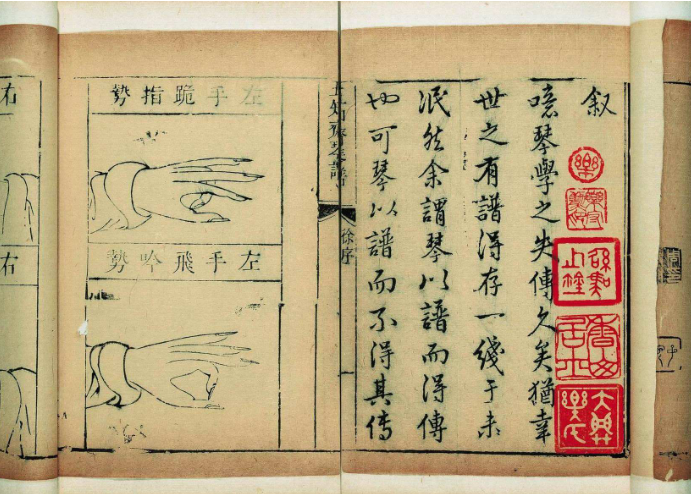 叙
噫琴學之失傳久矣猶幸
世之有譜得存一綫于未
泯然余謂琴以譜而得傳
也可琴以譜而不得其传
樂
五知齋琴譜
徐序
左手跪指勢
左手飛吟勢
右
右